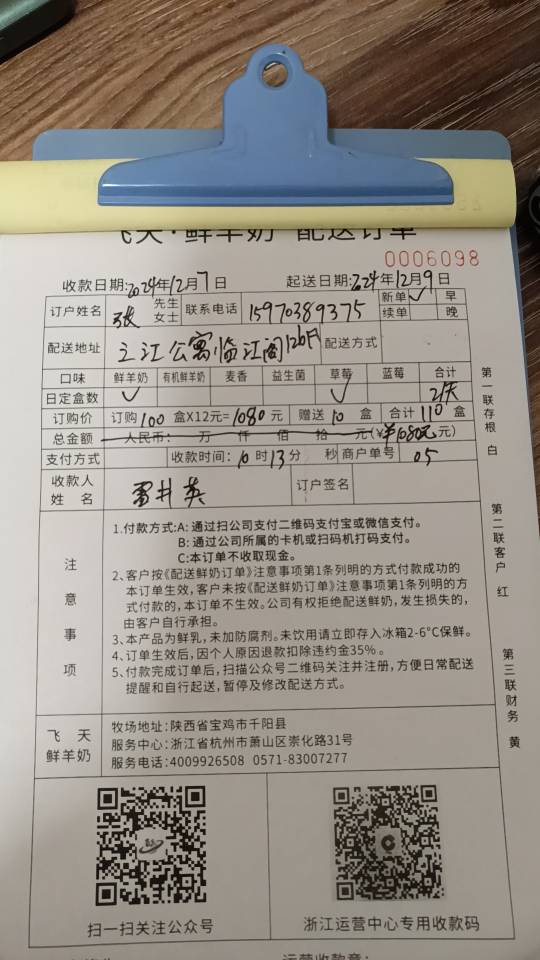 飞天·鲜羊奶 配送订单
0006098
收款日期:2024年12月7日 起送日期:2024年12月9日
订户姓名 张 先生 女士 联系电话 15970389375 新单 ✓ 早 续单 晚
配送地址 之江公寓临江阁 配送方式
口味 鲜羊奶 有机鲜羊奶 麦香 益生菌 草莓 蓝莓 合计
日定盒数 ✓ ✓ 2/天
订购价 订购100盒X12元=1080元 赠送10盒 合计110盒
总金额 人民币: 万 仟 佰 拾 元(¥1080元元)
支付方式 收款时间:10时13分 秒 商户单号 05
收款人姓名 井英 订户签名
注意事项
1.付款方式:A: 通过扫公司支付二维码支付宝或微信支付。
B: 通过公司所属的卡机或扫码机打码支付。
C:本订单不收取现金。
2、客户按《配送鲜奶订单》注意事项第1条列明的方式付款成功的
本订单生效,客户未按《配送鲜奶订单》注意事项第1条列明的方
式付款的,本订单不生效。公司有权拒绝配送鲜奶,发生损失的,
由客户自行承担。
3、本产品为鲜乳,未加防腐剂。未饮用请立即存入冰箱2-6°C保鲜。
4、订单生效后,因个人原因退款扣除违约金35%。
5、付款完成订单后,扫描公众号二维码关注并注册,方便日常配送
提醒和自行起送,暂停及修改配送方式。
飞天鲜羊奶
牧场地址:陕西省宝鸡市千阳县
服务中心:浙江省杭州市萧山区崇化路31号
服务电话:4009926508 0571-83007277
扫一扫关注公众号
浙江运营中心专用收款码
运营收款章:
第一联存根 白
第二联客户 红
第三联财务 黄